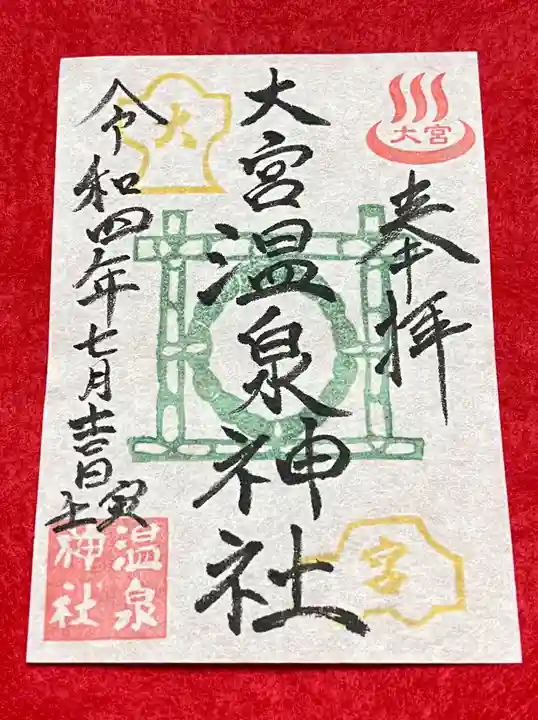 大宮
奉拝
大宮温泉神社
大
宮
令和四年七月十二日
壬寅
温泉
神社